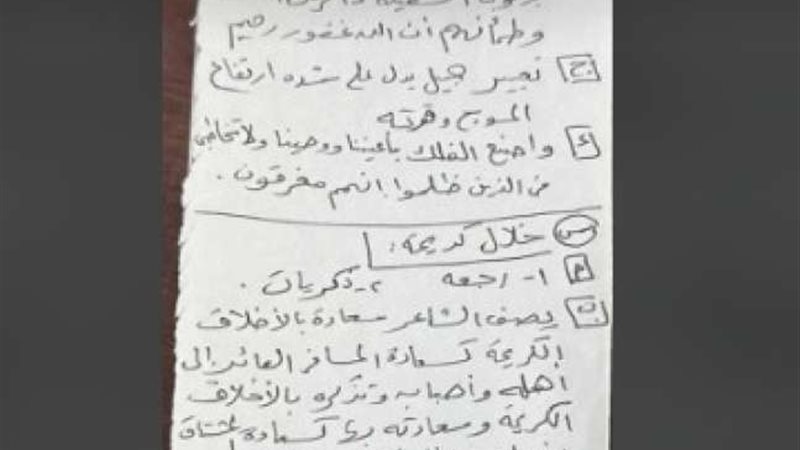 وطمأنهم أن الله غفور رحيم
ج تعبير جميل يدل على شدة ارتفاع
الموج وقوته
ء واصنع الفلك بأعيننا ووحينا ولا تخاطبني
في الذين ظلموا إنهم مغرقون .
س خلال كريمة :
م ١- رجعه ٢- ذكريات .
ب يصف الشاعر سعادة بالأخلاق
الكريمة كسعادة المسافر العائد إلى
أهله وأحبابه وتذكره بالأخلاق
الكريمة وسعادته بها كسعادة المشتاق